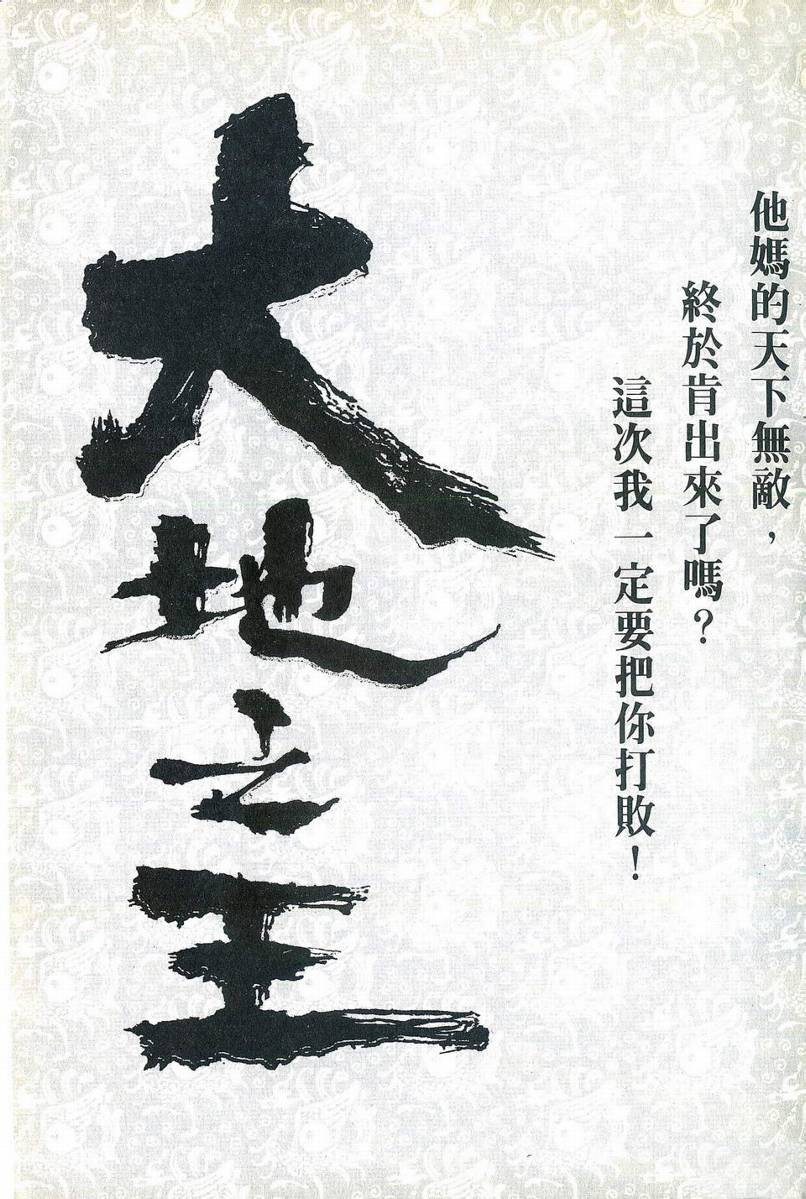 他媽的天下無敵，
終於肯出來了嗎？
這次我一定要把你打敗！
大地之王